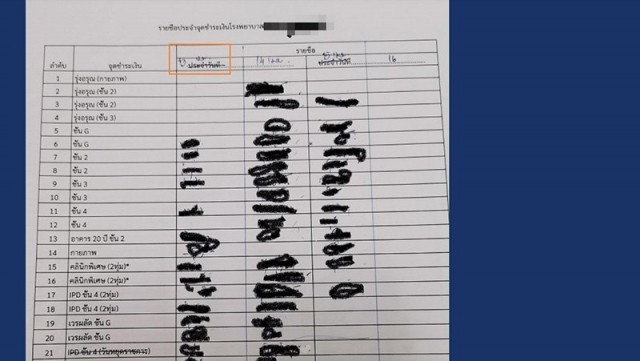 รายชื่อประจำจุดชำระเงินโรงพยาบาล
ลำดับ จุดชำระเงิน รายชื่อ
13 เมย ประจำวันที่... 14 เมย 15 เมย ประจำวันที่ 16
1 รุ่งอรุณ (กายภาพ)
2 รุ่งอรุณ (ชั้น 2)
3 รุ่งอรุณ (ชั้น 2)
4 รุ่งอรุณ (ชั้น 3)
5 ชั้น G
6 ชั้น G
7 ชั้น 2
8 ชั้น 2
9 ชั้น 3
10 ชั้น 3
11 ชั้น 4
12 ชั้น 4
13 อาคาร 20 ปี ชั้น 2
14 กายภาพ
15 คลินิกพิเศษ (2ทุ่ม)*
16 คลินิกพิเศษ (2ทุ่ม)*
17 IPD ชั้น 4 (2ทุ่ม)
18 IPD ชั้น 4 (2ทุ่ม)
19 เวรผลัด ชั้น G
20 เวรผลัด ชั้น G
21 IPD ชั้น 4 (วันหยุดราชการ)